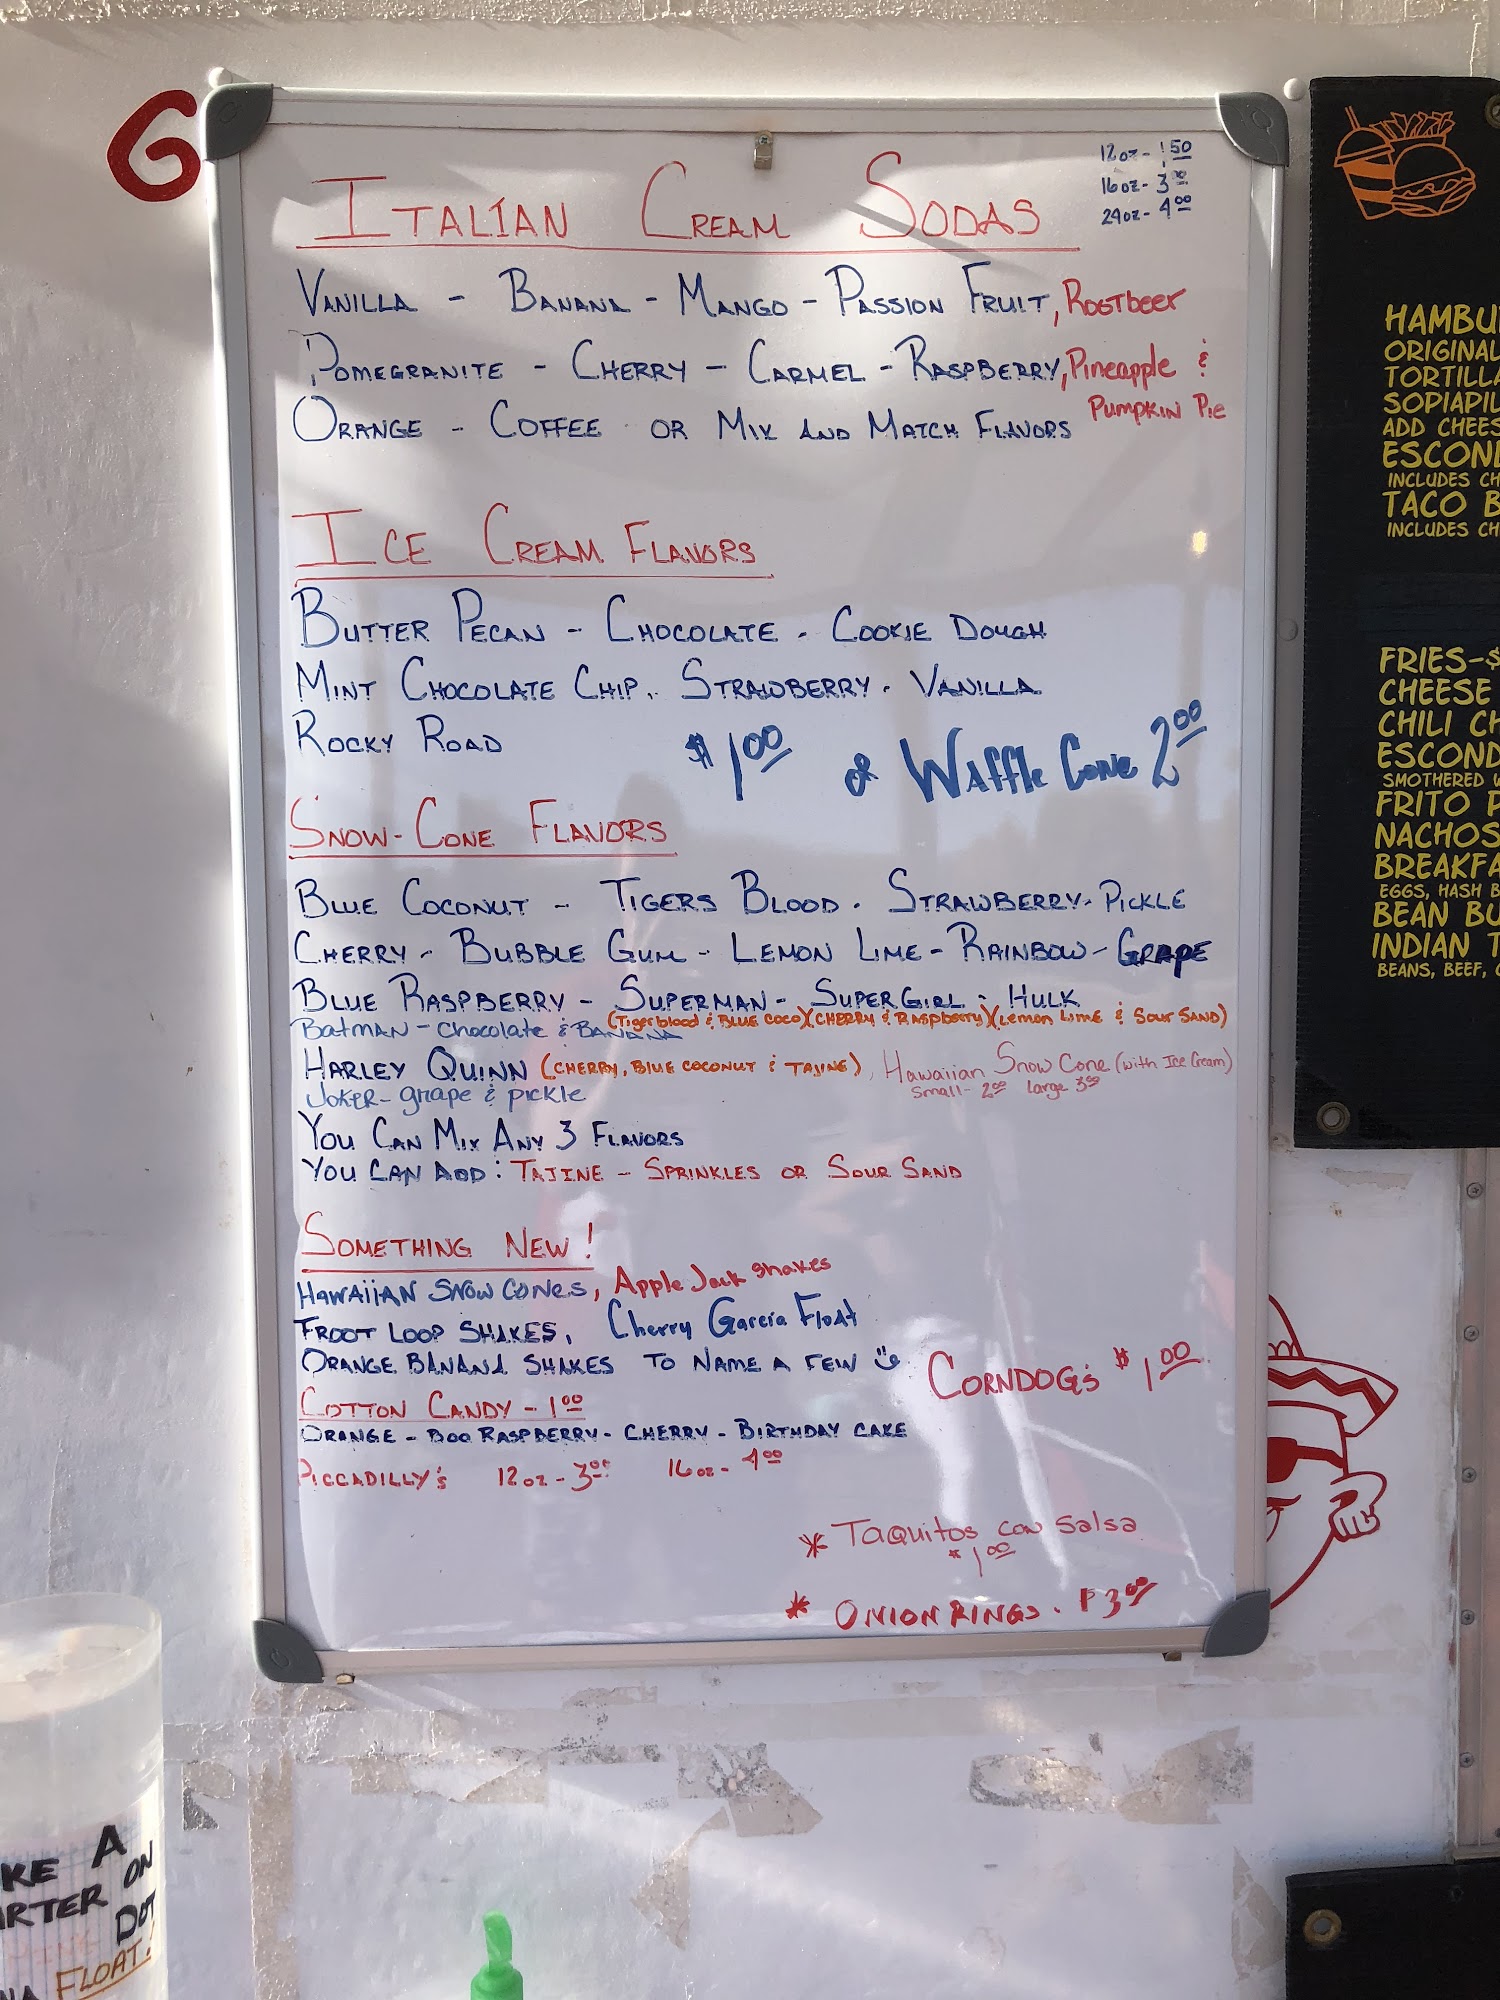 G
12oz - 1.50
16oz - 3.00
24oz - 4.00
ITALIAN CREAM SODAS
VANILLA - BANANA - MANGO - PASSION FRUIT, Rootbeer
POMEGRANITE - CHERRY - CARMEL - RASPBERRY, Pineapple &
PUMPKIN PIE
ORANGE - COFFEE OR MIX AND MATCH FLAVORS
ICE CREAM FLAVORS
BUTTER PECAN - CHOCOLATE - COOKIE DOUGH
MINT CHOCOLATE CHIP. STRAWBERRY. VANILLA
ROCKY ROAD $1.00 or Waffle Cone 2.00
SNOW-CONE FLAVORS
BLUE COCONUT - TIGERS BLOOD. STRAWBERRY. PICKLE
CHERRY - BUBBLE GUM - LEMON LIME - RAINBOW - GRAPE
BLUE RASPBERRY - SUPERMAN - SUPERGIRL - HULK
(Tigerblood & BLUE COCO) (CHERRY & RASpberry) (LEMON LIME & SOUR SAND)
BATMAN - Chocolate & BANANA
HARLEY QUINN (CHERRY, BLUE COCONUT & TAJINE), Hawaiian Snow Cone (with Ice Cream)
small - 2.00 large 3.00
JOKER - grape & pickle
YOU CAN MIX ANY 3 FLAVORS
YOU CAN ADD: TAJINE - SPRINKLES OR SOUR SAND
SOMETHING NEW!
HAWAIIAN SNOW CONES, Apple Jack shakes
FROOT LOOP SHAKES, Cherry Garcia Float
ORANGE BANANA SHAKES TO NAME A FEW
CORNDOG'S $1.00
COTTON CANDY - 1.00
ORANGE - BOO RASPBERRY - CHERRY - BIRTHDAY CAKE
PICCADILLY'S 12oz - 3.00 16oz - 4.00
* TAQUITOS CON SALSA
$1.00
* ONION RINGS. $3.00
HAMBU
ORIGINAL
TORTILLA
SOPIAPIL
ADD CHEES
ESCOND
INCLUDES CH
TACO B
INCLUDES CH
FRIES-$
CHEESE
CHILI CH
ESCOND
SMOTHERED W
FRITO P
NACHOS
BREAKFA
EGGS, HASH B
BEAN BU
INDIAN T
BEANS, BEEF, C
KE A
ARTER ON
DOT
FLOAT!